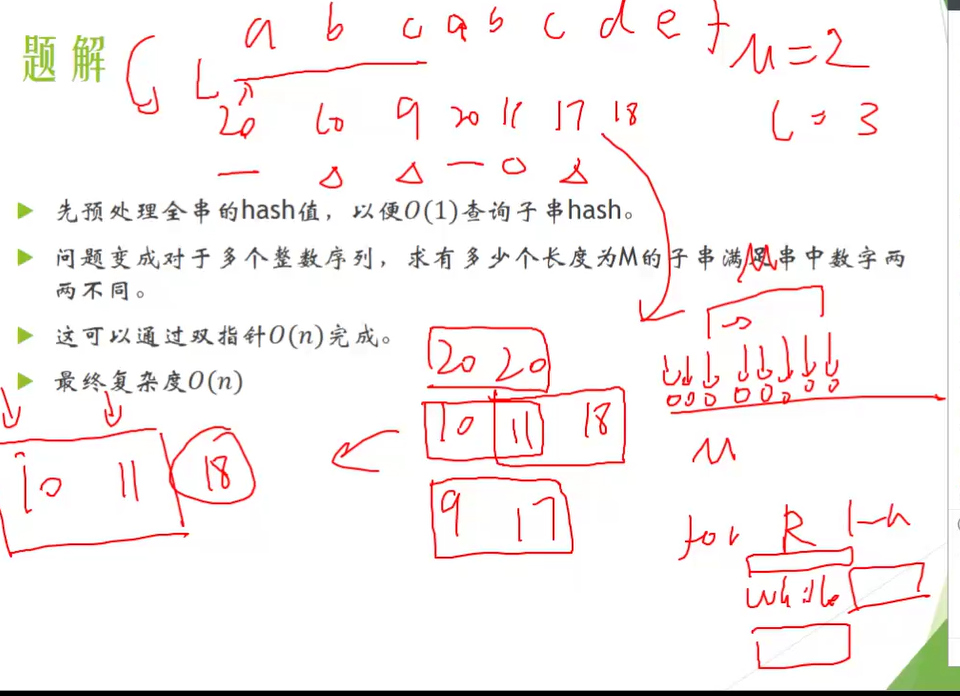 a b c a b c d e f
题解
L
M=2
20 10 9 20 11 17 18
L=3
先预处理全串的hash值，以便O(1)查询子串hash。
问题变成对于多个整数序列，求有多少个长度为M的子串满足串中数字两
两不同。
M
这可以通过双指针O(n)完成。
20 20
最终复杂度O(n)
10 11 18
M
10 11 18
9 17
for R 1-n
while